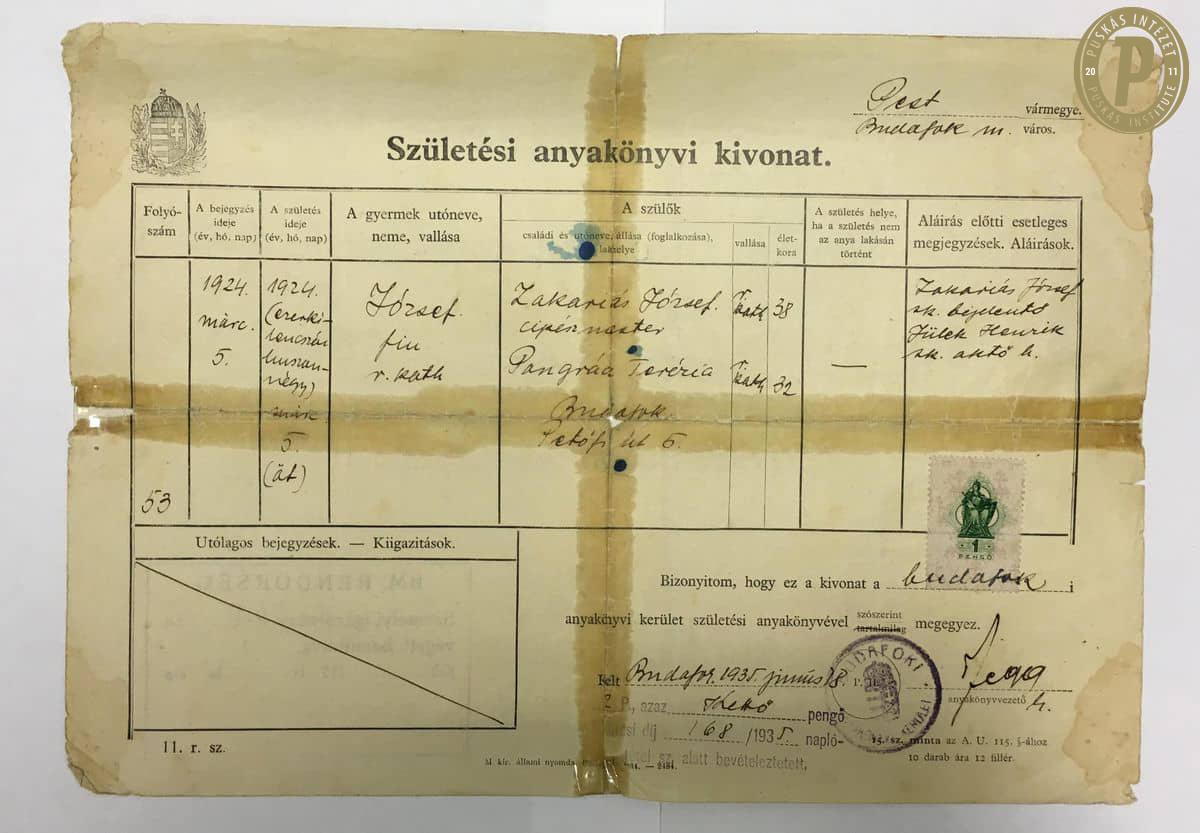 PUSKÁS INTÉZET
20 P 11
PUSKÁS INSTITUTE
Pest vármegye.
Budafok m. város.
Születési anyakönyvi kivonat.
Folyó-
szám
A bejegyzés
ideje
(év, hó, nap)
A születés
ideje
(év, hó, nap)
A gyermek utóneve,
neme, vallása
A szülők
családi és utóneve, állása (foglalkozása),
lakhelye
vallása
élet-
kora
A születés helye,
ha a születés nem
az anya lakásán
történt
Aláírás előtti esetleges
megjegyzések. Aláírások.
53
1924.
márc.
5.
1924.
(ezerki-
lencszáz
huszon-
négy)
márc.
5.
(öt)
József.
fiu
r. kath
Zakariás József.
cipészmester
r. kath 38
Pongrácz Terézia
r. kath 32
Budafok
Petőfi út 6.
—
Zakariás József
sk. bejelentő
Jülek Henrik
sk. aktő h.
1
PENGŐ
Utólagos bejegyzések. — Kiigazítások.
Bizonyitom, hogy ez a kivonat a budafok i
anyakönyvi kerület születési anyakönyvével szószerint
tartalmilag megegyez.
Kelt Budafok, 1935. június 18.
P. H.
BUDAFOKI
anyakönyvvezető h.
2 P., azaz Kettő pengő
díj 168 /1935. napló-
tétel sz. alatt bevételeztetett.
11. r. sz.
M. kir. állami nyomda
— 2484.
15. sz. minta az A. U. 115. §-ához
10 darab ára 12 fillér.
BM. RENDŐRSÉG